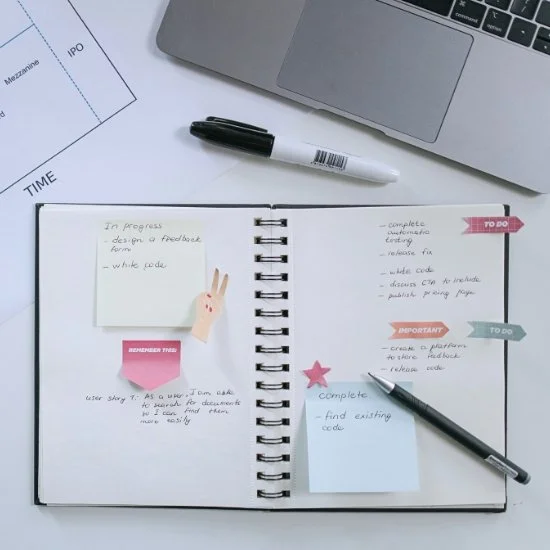 IPO
Mezzanine
TIME
command
option
In progress
- design a feedback
form
- write code
REMEMBER THIS!
user story 1: As a user, I am able
to search for documents
so I can find them
more easily
- complete
automatic
testing
TO DO
- release fix
- write code
- discuss CTA to include
- publish pricing page
IMPORTANT
TO DO
- create a platform
to store feedback
- release code
complete
- find existing
code